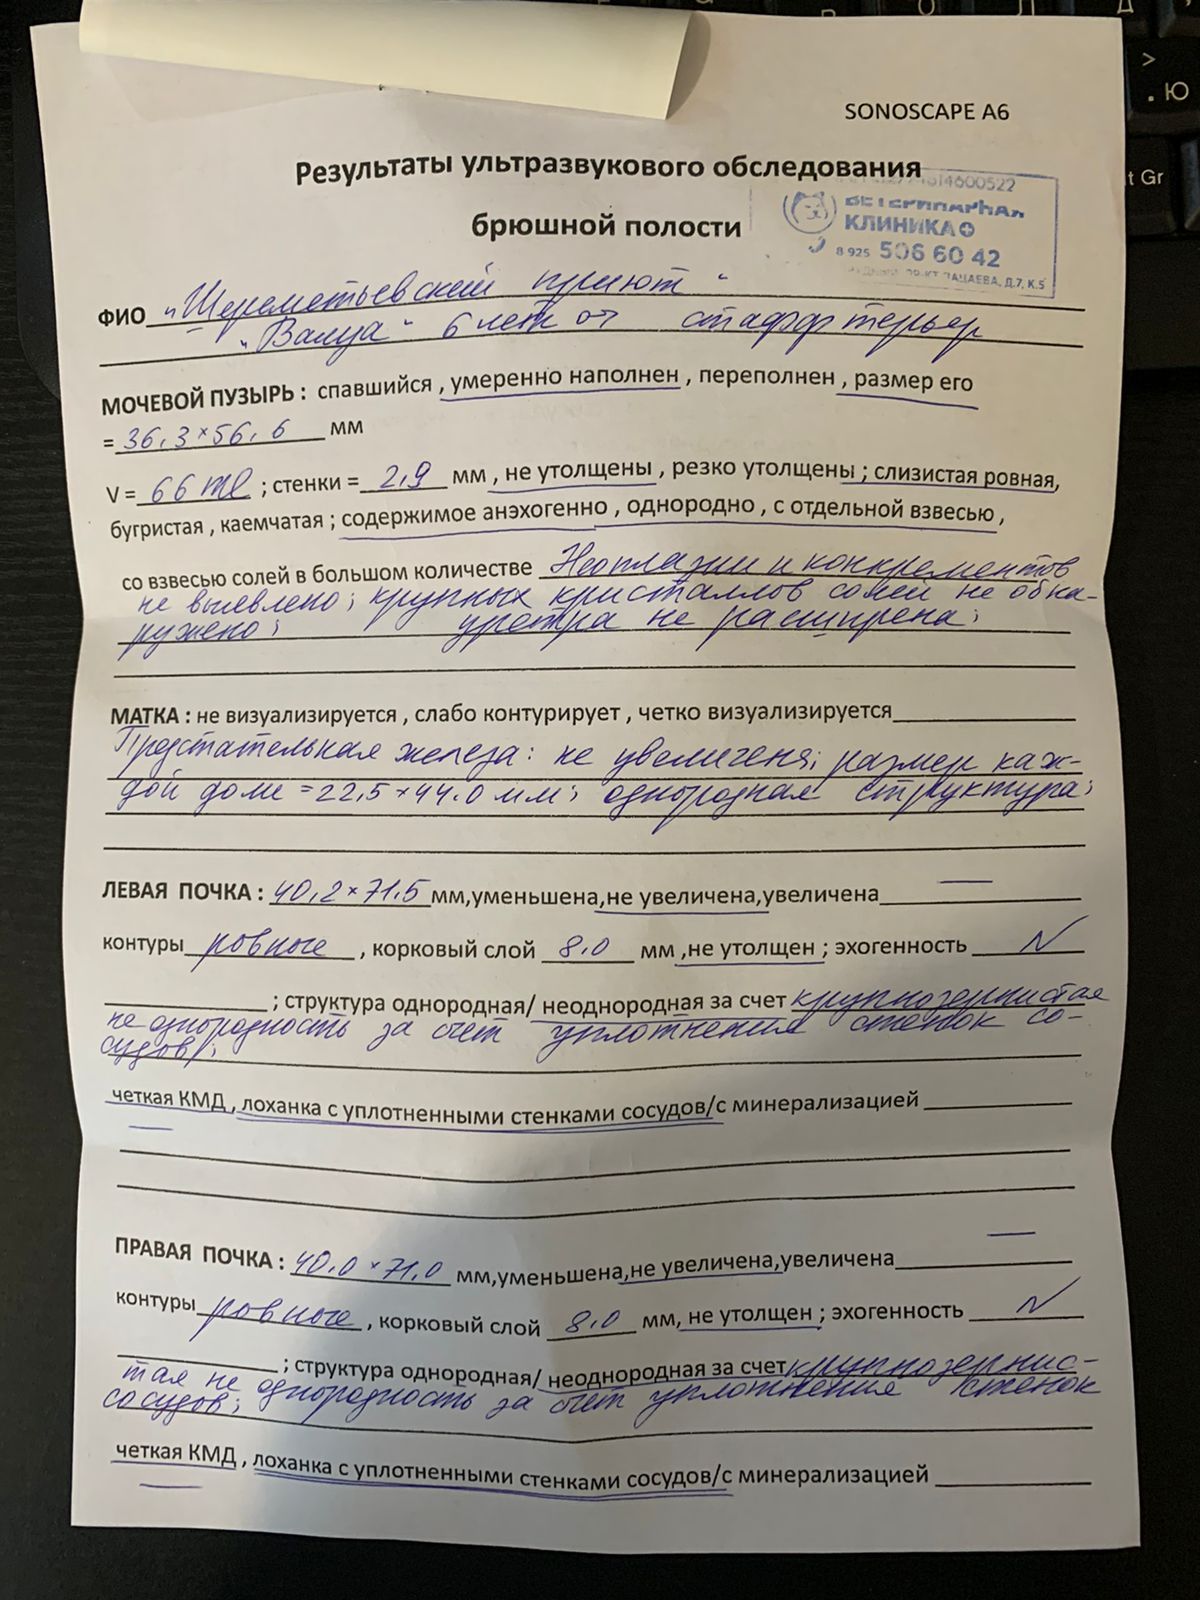 SONOSCAPE A6
Результаты ультразвукового обследования
брюшной полости
4600522
ВЕТЕРИНАРНАЯ
КЛИНИКА
8 925 506 60 42
ПАЦАЕВА, Д.7, К.5
ФИО „Шереметьевский приют"
„Валуа" 6 лет ♂ стафф терьер
МОЧЕВОЙ ПУЗЫРЬ : спавшийся , умеренно наполнен , переполнен , размер его
= 36,3×56,6 мм
V = 66 ml ; стенки = 2,9 мм , не утолщены , резко утолщены ; слизистая ровная,
бугристая , каемчатая ; содержимое анэхогенно , однородно , с отдельной взвесью ,
со взвесью солей в большом количестве Неоплазии и конкрементов
не выявлено; крупных кристаллов солей не обна-
ружено; уретра не расширена;
МАТКА : не визуализируется , слабо контурирует , четко визуализируется
Предстательная железа: не увеличена; размер каж-
дой доли = 22,5×44,0 мм; однородная структура;
ЛЕВАЯ ПОЧКА : 40,2×71,5 мм,уменьшена,не увеличена,увеличена —
контуры ровные , корковый слой 8,0 мм ,не утолщен ; эхогенность N
; структура однородная/ неоднородная за счет крупнозернистая
не однородность за счет уплотнения стенок со-
судов;
четкая КМД , лоханка с уплотненными стенками сосудов/с минерализацией
ПРАВАЯ ПОЧКА : 40,0×71,0 мм,уменьшена,не увеличена,увеличена —
контуры ровные , корковый слой 8,0 мм, не утолщен ; эхогенность N
; структура однородная/ неоднородная за счет крупнозернис-
тая не однородность за счет уплотнения стенок
сосудов;
четкая КМД , лоханка с уплотненными стенками сосудов/с минерализацией